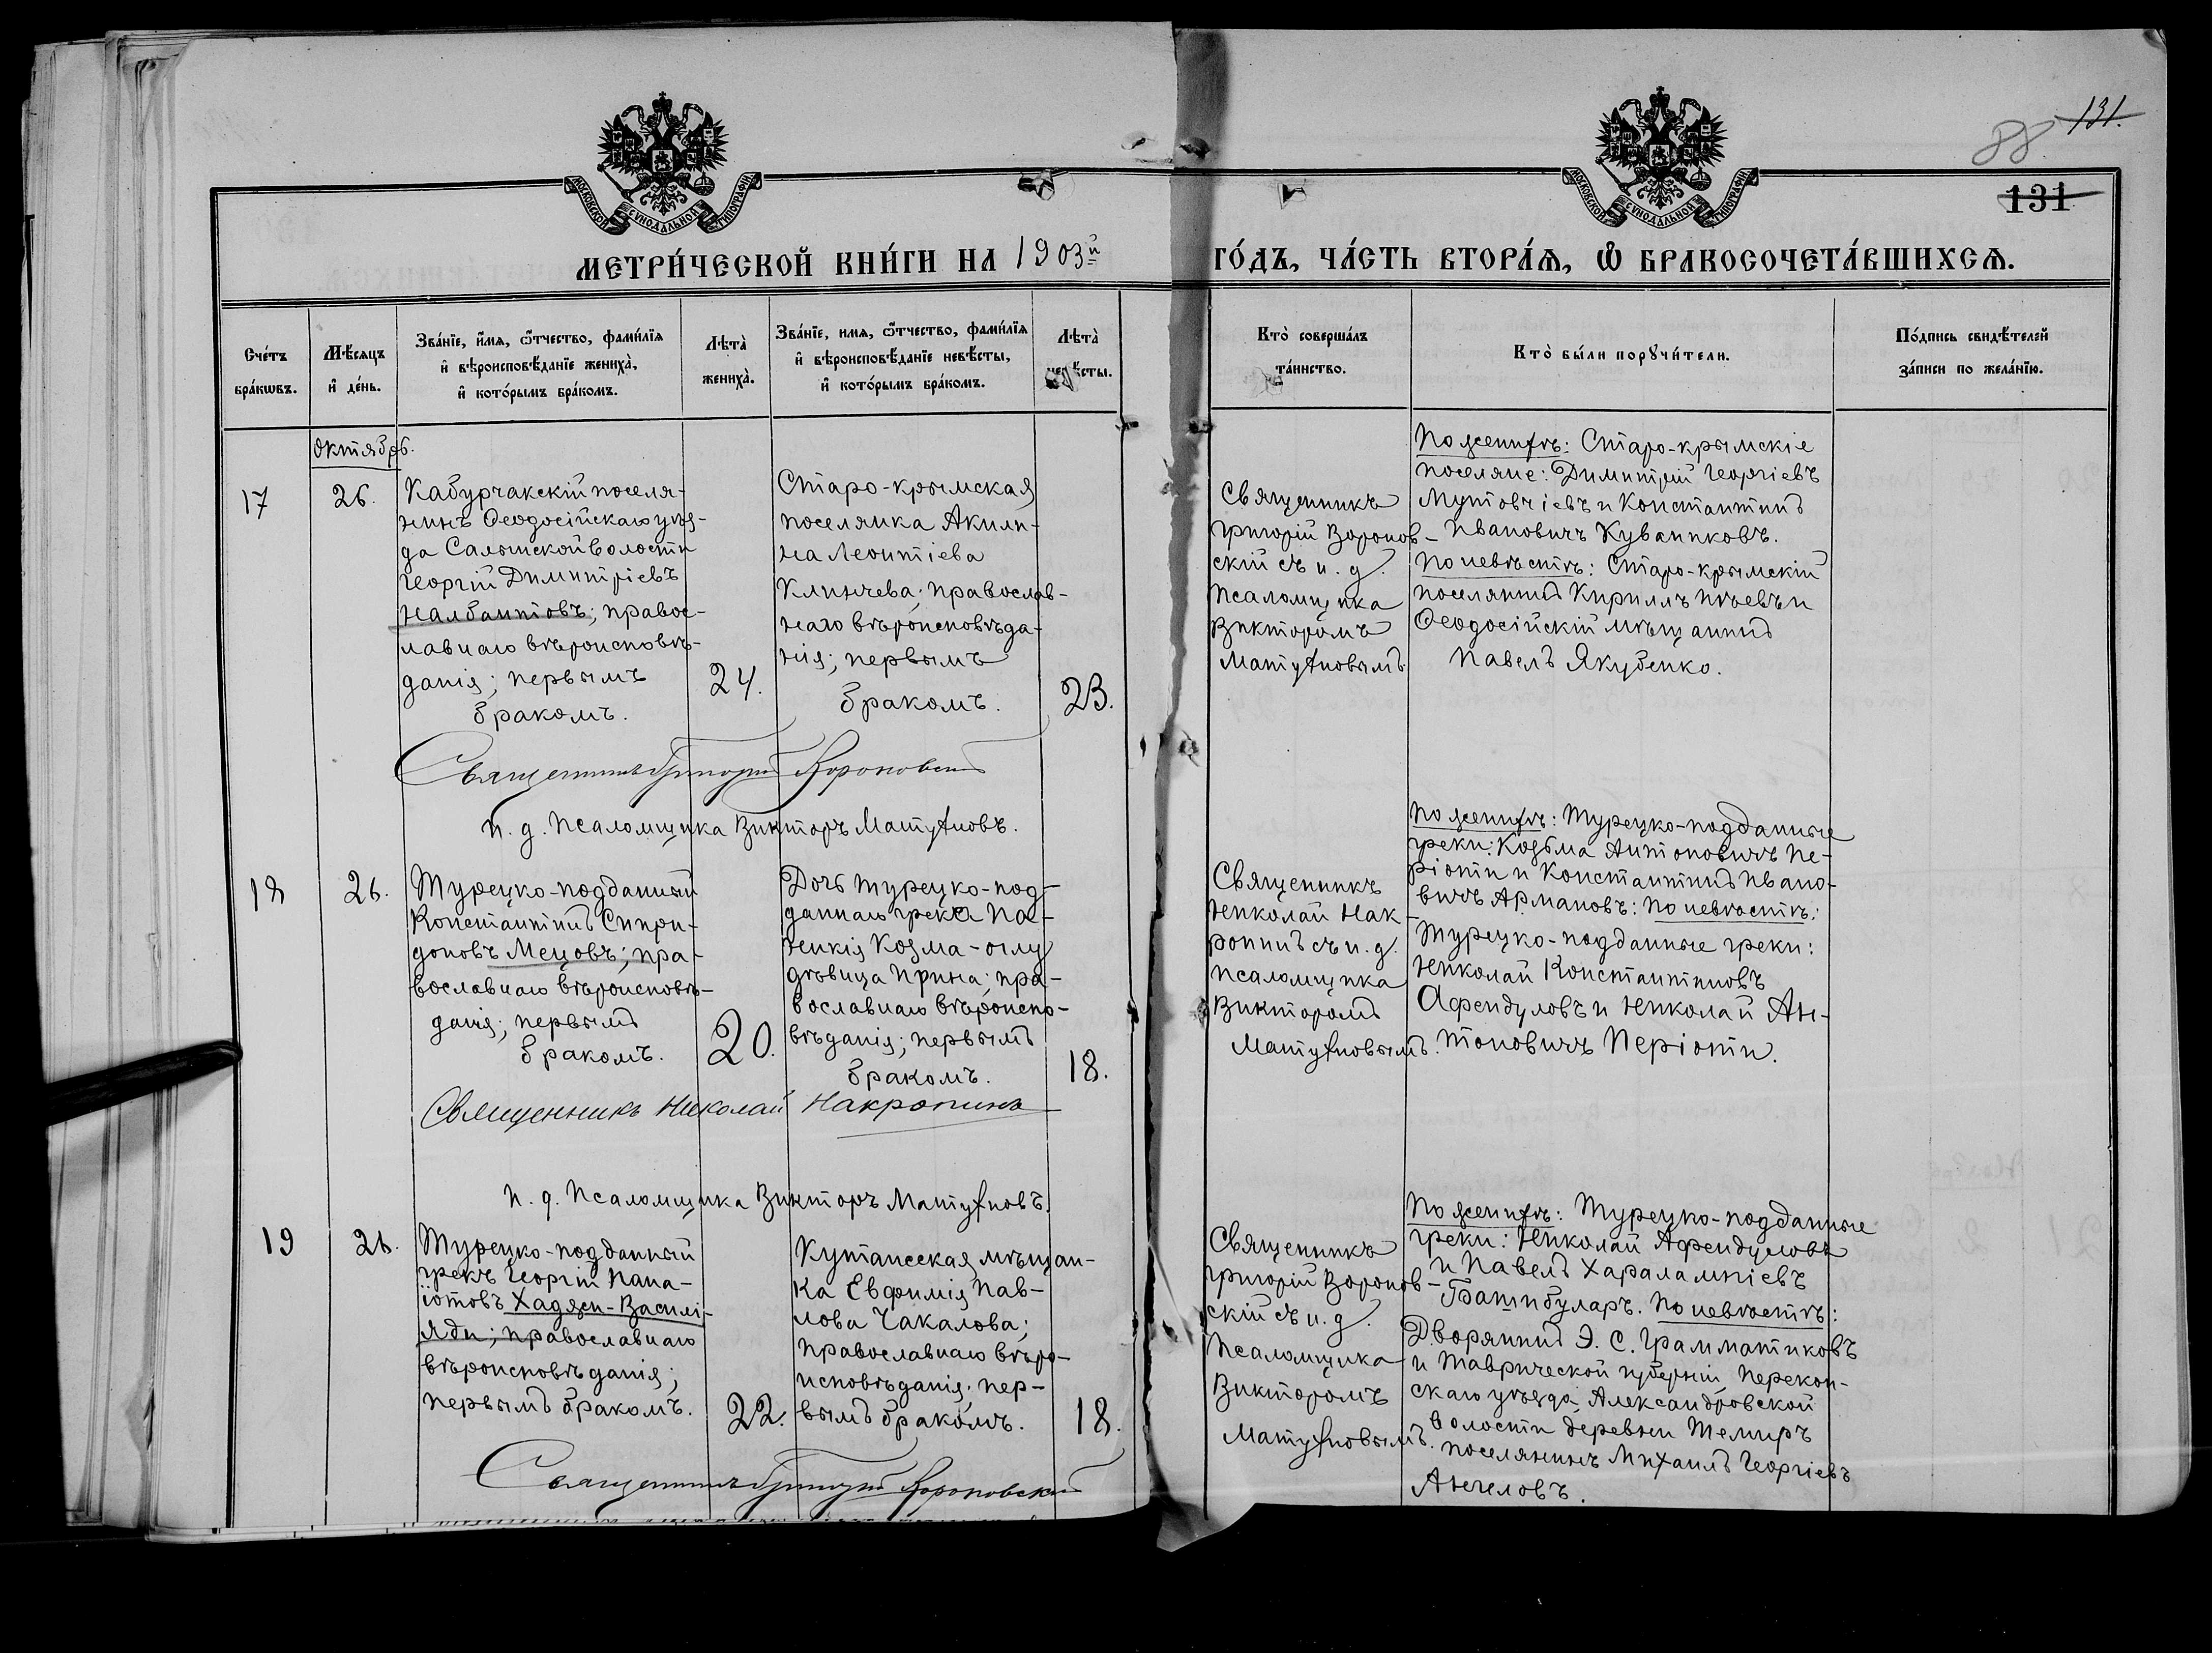 131.
88
131
МОСКОВСКОЙ СУНОДАЛЬНОЙ ТИПОГРАФІИ
МОСКОВСКОЙ СУНОДАЛЬНОЙ ТИПОГРАФІИ
МЕТРИ́ЧЕСКОЙ КНИ́ГИ НА 1903й ГО́ДЪ, ЧА́СТЬ ВТОРА́Я, Ѿ БРАКОСОЧЕТА́ВШИХСЯ.
Сче́тъ
бра́кѡвъ.
Мѣ́сяцъ
и҆ де́нь.
Зва́нїе, и҆́мя, ѻ҆́тчество, фами́лїя
и҆ вѣроисповѣ́данїе жениха̀,
и҆ кото́рымъ бра́комъ.
Лѣта̀
жениха̀.
Зва́нїе, имя, ѻ҆́тчество, фами́лїя
и҆ вѣроисповѣ́данїе невѣ́сты,
и҆ кото́рымъ бра́комъ.
Лѣта̀
невѣ́сты.
Кто̀ соверша́лъ
та́инство.
Кто̀ бы́ли порꙋчи́тели.
По́дпись свидѣ́телей
за́писи по жела́нїю.
Октябрь.
17
26.
Кабурчакскій поселя-
нинъ Ѳеодосійскаго уѣз-
да Салынской волости
Георгій Димитріевъ
Налбантовъ; правос-
лавнаго вѣроисповѣ-
данія; первымъ
бракомъ.
24.
Старо-крымская
поселянка Акили-
на Леонтіева
Клинчева; православ-
наго вѣроисповѣда-
нія; первымъ
бракомъ.
23.
Священникъ
Григорій Воронов-
скій съ и. д.
Псаломщика
Викторомъ
Матухновымъ
По женихѣ: Старо-крымскіе
поселяне: Димитрій Георгіевъ
Мутовчіевъ и Константинъ
Ивановичъ Куваниковъ.
По невѣстѣ: Старо-крымскій
поселянинъ Кириллъ Ильевъ и
Ѳеодосійскій мѣщанинъ
Павелъ Якубенко.
Священникъ Григорій Вороновскій
И. д. Псаломщика Викторъ Матухновъ.
18
26.
Турецко-подданный
Константинъ Спири-
доновъ Мецовъ; пра-
вославнаго вѣроисповѣ-
данія; первымъ
бракомъ.
20.
Дочь турецко-под-
даннаго грека Па-
Козма-оглу
дѣвица Ирина; пра-
вославнаго вѣроиспо-
вѣданія; первымъ
бракомъ.
18.
Священникъ
Николай Нак-
ропинъ съ и. д.
псаломщика
Викторомъ
Матухновымъ.
По женихѣ: Турецко-подданные
греки: Козьма Антоновичъ Пе-
ріоти и Константинъ Ивано-
вичъ Армановъ: По невѣстѣ:
Турецко-подданные греки:
Николай Константиновъ
Афендуловъ и Николай Ан-
тоновичъ Періоти.
Священникъ Николай Накропинъ
И. д. Псаломщика Викторъ Матухновъ.
19
26.
Турецко-подданный
грекъ Георгій Пана-
іотовъ Хаджи-Василі-
яди; православнаго
вѣроисповѣданія;
первымъ бракомъ.
22.
Кутаисская мѣщан-
ка Евфимія Пав-
лова Чакалова;
православнаго вѣро-
исповѣданія; пер-
вымъ бракомъ.
18.
Священникъ
Григорій Воронов-
скій съ и. д.
Псаломщика
Викторомъ
Матухновымъ.
По женихѣ: Турецко-подданные
греки: Николай Афендуловъ
и Павелъ Харалампіевъ
Батибуларъ. По невѣстѣ:
Дворянинъ Э. С. Грамматиковъ
и Таврической губерніи, Перекоп-
скаго уѣзда, Александровской
волости деревни Темиръ
поселянинъ Михаилъ Георгіевъ
Ангеловъ.
Священникъ Григорій Вороновскій